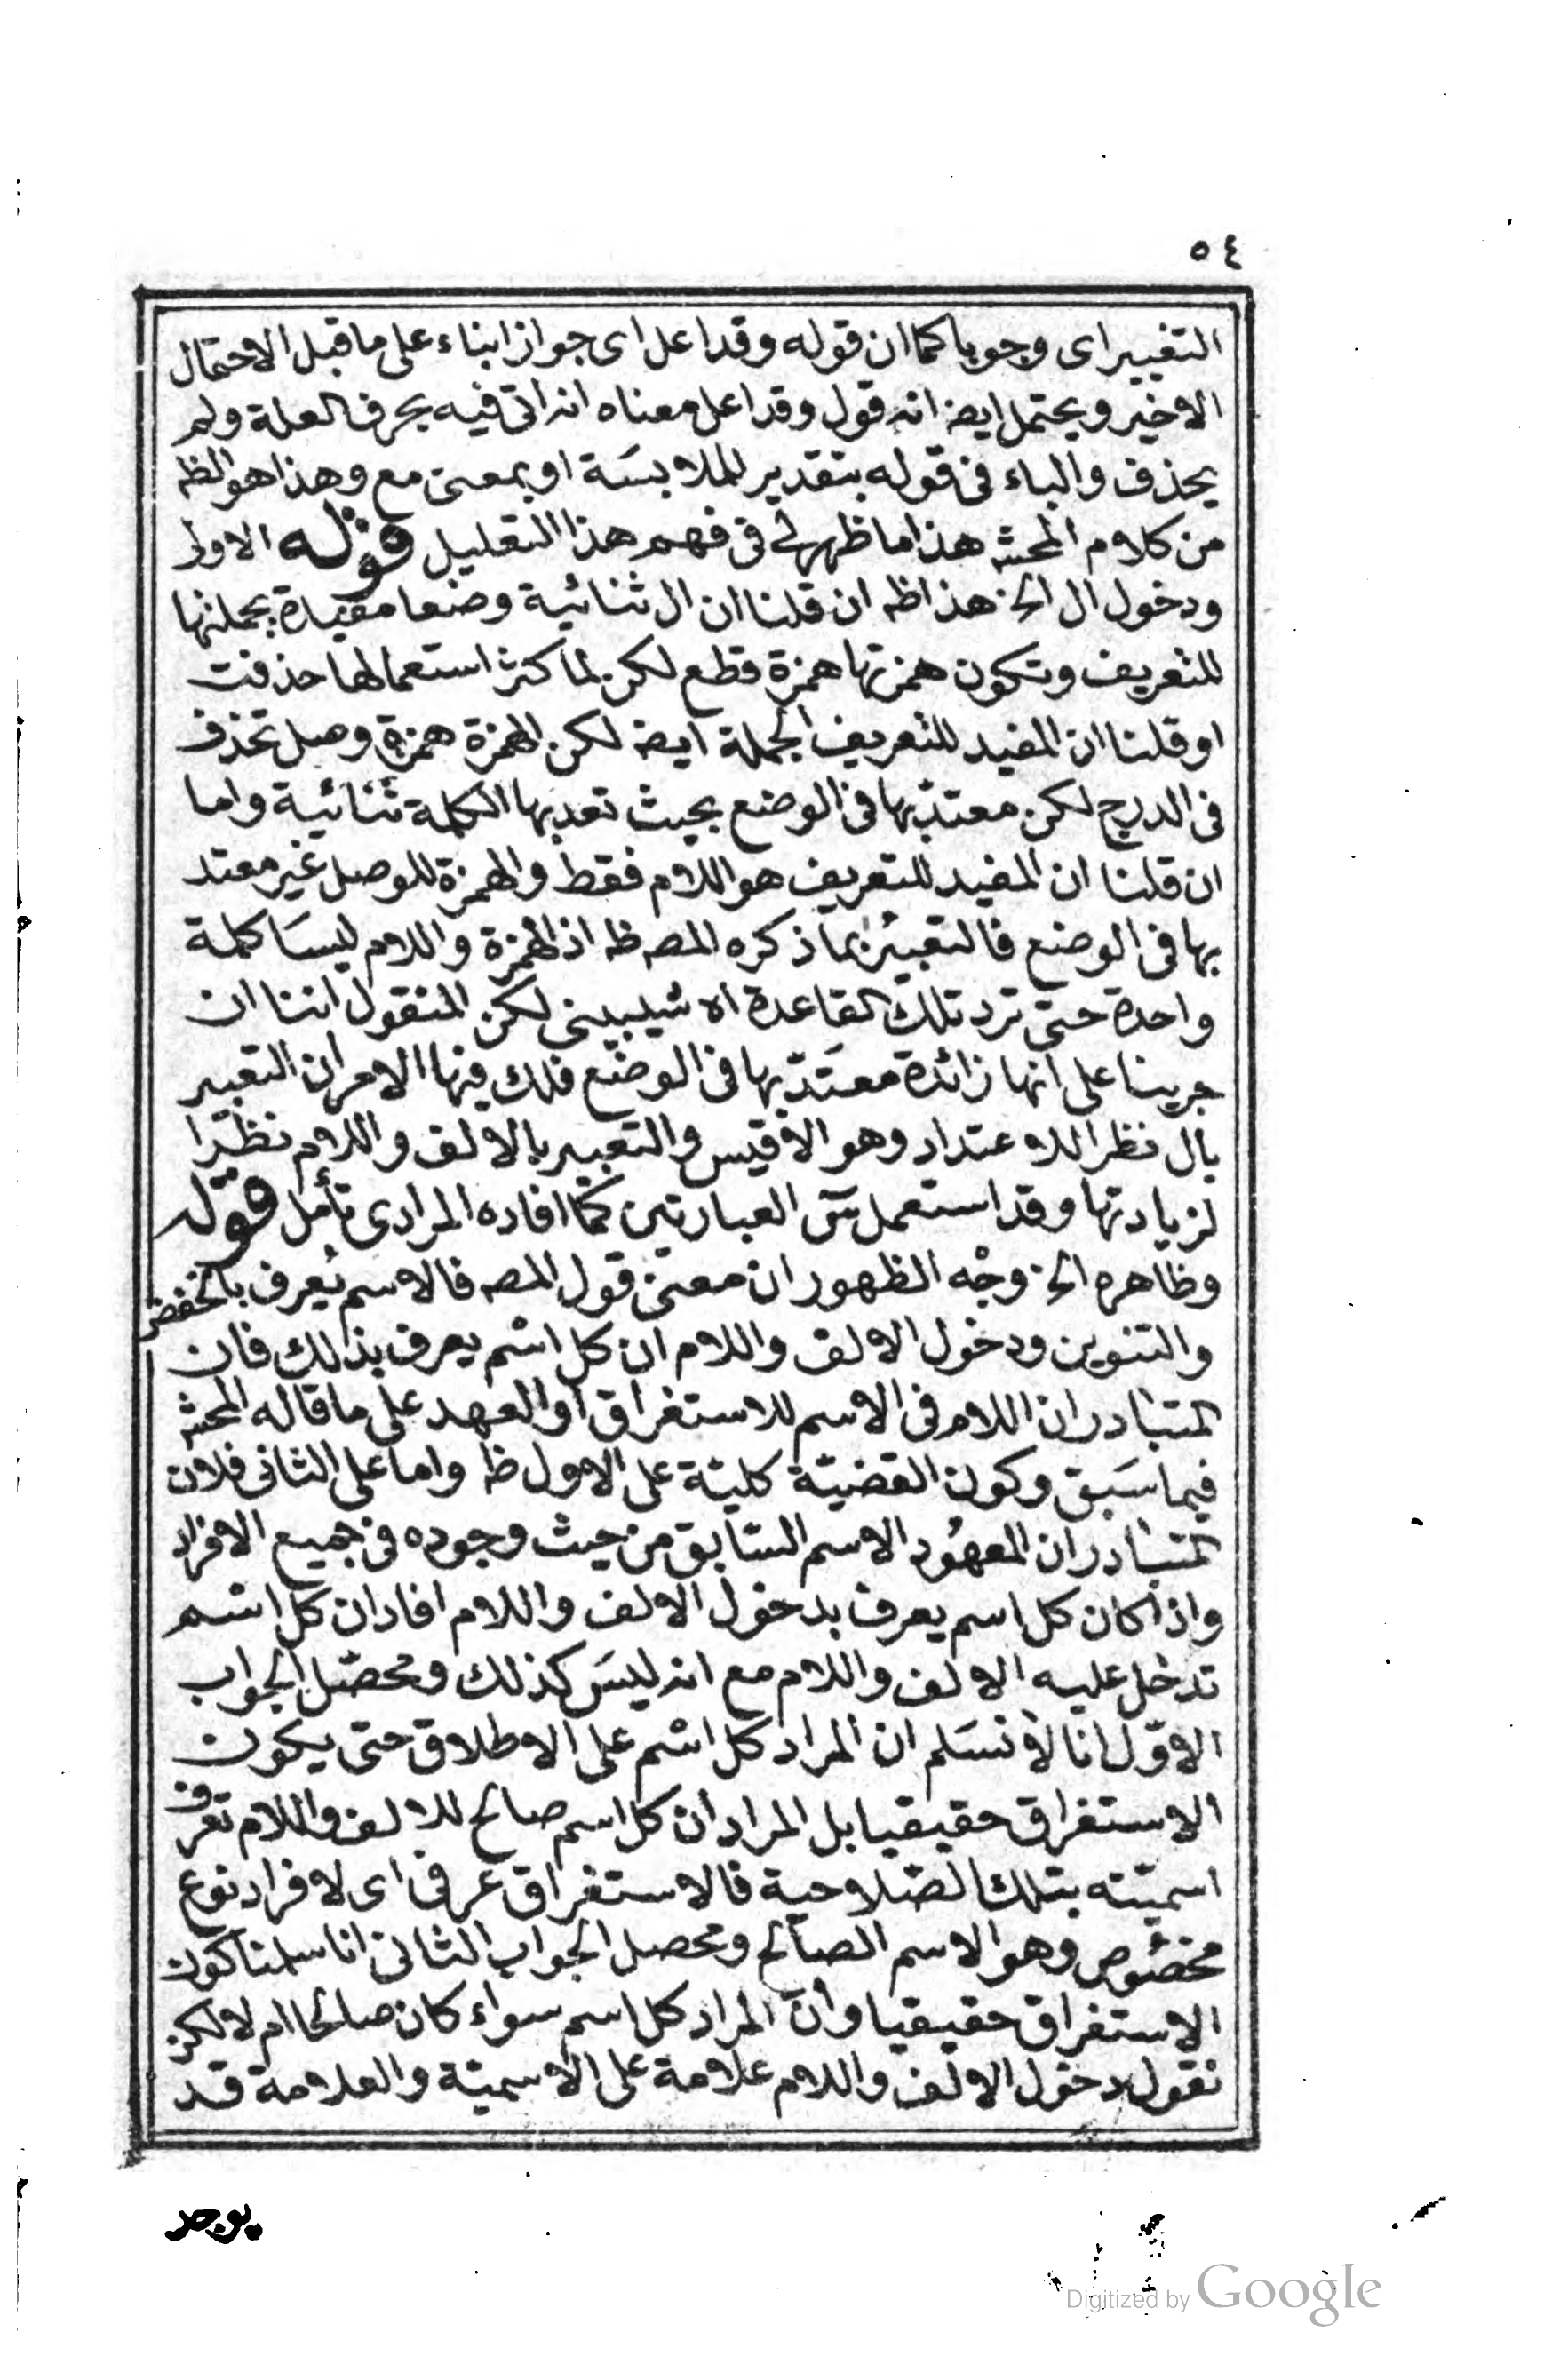 ٥٤
التغيير اى وجوبا كما ان قوله وقد اعل اى جوازا بناء على ما قبل الاحتمال
الاخير ويحتمل ايضا انه قول وقد اعل معناه انه اتى فيه بحرف العلة ولم
يحذف والباء فى قوله بتقدير للملابسَة او بمعنى مع وهذا هو الظ
من كلام المحشى هذا ما ظهر لى فى فهم هذا التعليل قوله الاولى
ودخول ال الخ هذا ظ ان قلنا ان ال ثنائية وضعا مفيدة بجملتها
للتعريف وتكون همزتها همزة قطع لكن لما كثر استعمالها حذفت
او قلنا ان المفيد للتعريف الجملة ايضا لكن الهمزة همزة وصل تحذف
فى الدرج لكن معتدّ بها فى الوضع بحيث تعد بها الكلمة ثنائية واما
ان قلنا ان المفيد للتعريف هو اللام فقط والهمزة للوصل غير معتد
بها فى الوضع فالتعبير بما ذكره المص ظ اذ الهمزة واللام ليسَا كلمة
واحدة حتى ترد تلك القاعدة اه شيبينى لكن المنقول اننا ان
جرينا على انها زائدة معتدّ بها فى الوضع فلك فيها الامران التعبير
بال نظرا للاعتداد وهو الاقيس والتعبير بالالف واللام نظرًا
لزيادتها وقد استعمل سٓ العبارتين كما افاده المرادى تأمل قوله
وظاهره الخ وجْه الظهور ان معنى قول المص فالاسم يُعرف بالخفض
والتنوين ودخول الالف واللام ان كل اسْم يعرف بذلك فان
المتبادر ان اللام فى الاسم للاستغراق او العهد على ما قاله المحشى
فيما سَبق وكون القضيّة كليّة على الاول ظ واما على الثانى فلان
المتبادر ان المعهُود الاسم السّابق من حيث وجوده فى جميع الافراد
واذا كان كل اسم يعرف بدخول الالف واللام افاد ان كل اسْم
تدخل عليه الالف واللام مع انه ليسَ كذلك ومحصّل الجواب
الاوّل انا لا نسَلم ان المراد كل اسْم على الاطلاق حتى يكون
الاستغراق حقيقيا بل المراد ان كل اسم صالح للالف واللام تعرف
اسميّته بتلك الصّلاحية فالاستغراق عرفى اى لافراد نوع
مخصُوص وهو الاسم الصالح ومحصل الجواب الثانى انا سلمنا كون
الاستغراق حقيقيا وانّ المراد كل اسم سواء كان صالحا ام لا لكن
نقول دخول الالف واللام علامة على الاسميّة والعلامة قد
يوجد
Digitized by Google